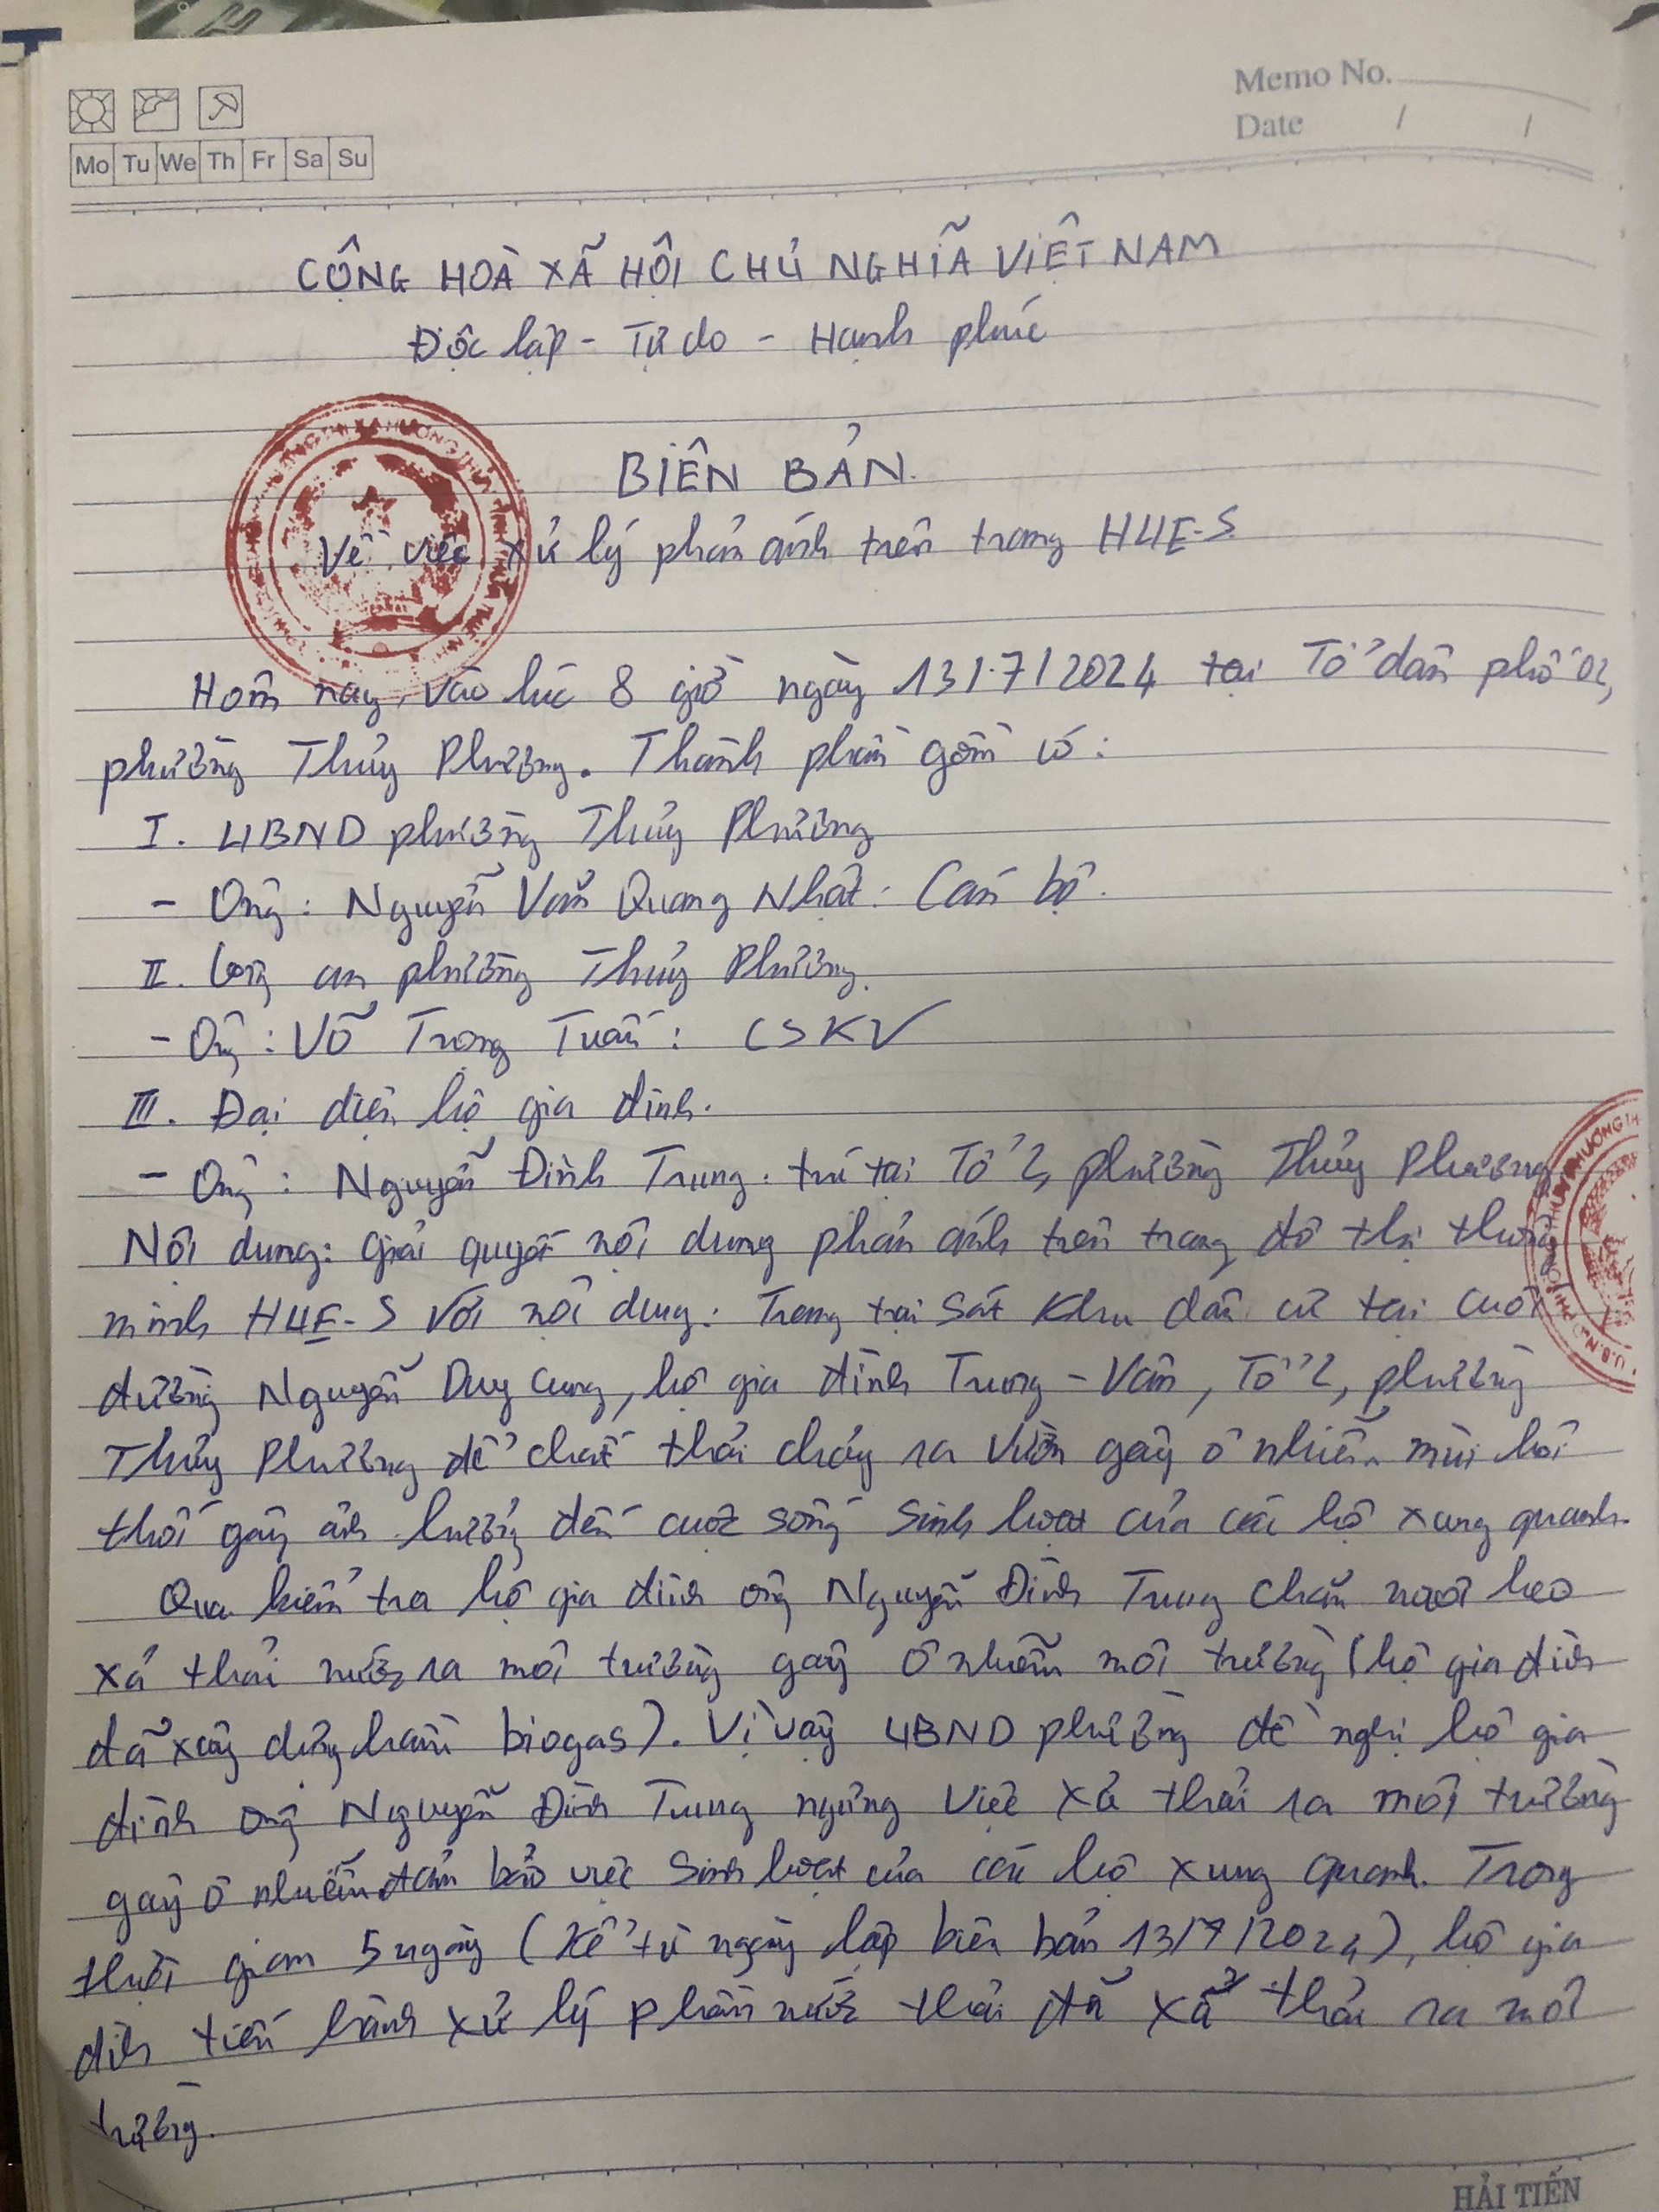 Memo No.
Date / /
Mo Tu We Th Fr Sa Su
CỘNG HOÀ XÃ HỘI CHỦ NGHĨA VIỆT NAM
Độc lập - Tự do - Hạnh phúc
BIÊN BẢN
Về việc xử lý phản ánh trên trang HUE-S
Hôm nay, vào lúc 8 giờ ngày 13/7/2024 tại Tổ dân phố 02,
phường Thủy Phương. Thành phần gồm có:
I. UBND phường Thủy Phương
- Ông: Nguyễn Văn Quang Nhật: Cán bộ.
II. Công an phường Thủy Phương.
- Ông: Võ Trọng Tuấn: CSKV
III. Đại diện hộ gia đình.
- Ông: Nguyễn Đình Trung. trú tại Tổ 2, phường Thủy Phương
Nội dung: Giải quyết nội dung phản ánh trên trang đô thị thông
minh HUE-S với nội dung: Trang trại sát khu dân cư tại cuối
đường Nguyễn Duy Cung, hộ gia đình Trung - Vân, Tổ 2, phường
Thủy Phương để chất thải chảy ra vườn gây ô nhiễm mùi hôi
thối gây ảnh hưởng đến cuộc sống sinh hoạt của các hộ xung quanh.
Qua kiểm tra hộ gia đình ông Nguyễn Đình Trung chăn nuôi heo
xả thải nước ra môi trường gây ô nhiễm môi trường (hộ gia đình
đã xây dựng hầm biogas). Vì vậy UBND phường đề nghị hộ gia
đình ông Nguyễn Đình Trung ngừng việc xả thải ra môi trường
gây ô nhiễm đảm bảo việc sinh hoạt của các hộ xung quanh. Trong
thời gian 5 ngày (Kể từ ngày lập biên bản 13/7/2024), hộ gia
đình tiến hành xử lý phần nước thải đã xả thải ra môi
trường.
HẢI TIẾN